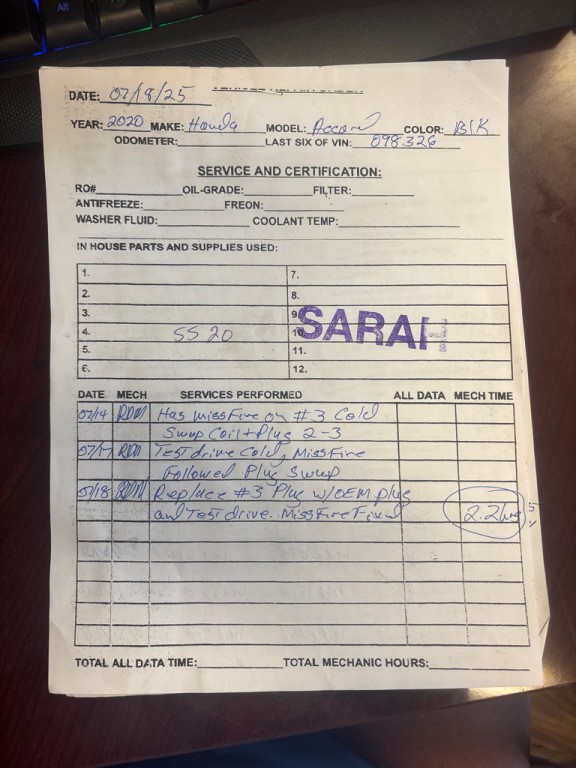 Alt
DATE: 07/18/25
YEAR: 2020 MAKE: Honda MODEL: Accord COLOR: BlK
ODOMETER: LAST SIX OF VIN: 098326
SERVICE AND CERTIFICATION:
RO# OIL-GRADE: FILTER:
ANTIFREEZE: FREON:
WASHER FLUID: COOLANT TEMP:
IN HOUSE PARTS AND SUPPLIES USED:
1. 7.
2. 8.
3. 9.
4. SS 20 10. SARAI
5. 11.
6. 12.
DATE MECH SERVICES PERFORMED ALL DATA MECH TIME
07/14 RDM Has missFire on #3 Cold
Swap Coil + Plug 2-3
07/17 RDM Test drive Cold, MissFire
Followed Plug Swap
07/18 RDM Replace #3 Plug w/OEM plug
and Test drive. MissFire Fixed 2.2hrs
TOTAL ALL DATA TIME: TOTAL MECHANIC HOURS: